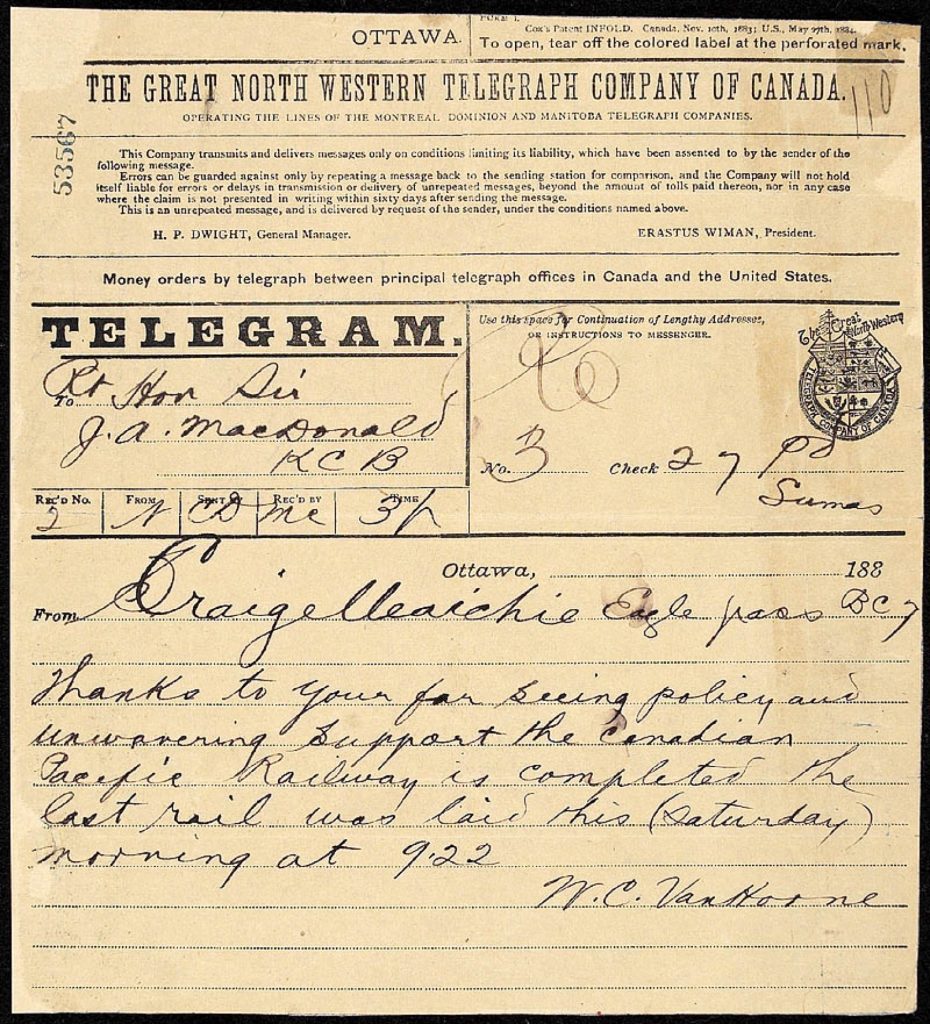 FORM 1.
OTTAWA.
Cox's Patent INFOLD. Canada, Nov. 10th, 1883; U.S., May 27th, 1884.
To open, tear off the colored label at the perforated mark.
THE GREAT NORTH WESTERN TELEGRAPH COMPANY OF CANADA.
110
OPERATING THE LINES OF THE MONTREAL, DOMINION AND MANITOBA TELEGRAPH COMPANIES.
53567
This Company transmits and delivers messages only on conditions limiting its liability, which have been assented to by the sender of the
following message.
Errors can be guarded against only by repeating a message back to the sending station for comparison, and the Company will not hold
itself liable for errors or delays in transmission or delivery of unrepeated messages, beyond the amount of tolls paid thereon, nor in any case
where the claim is not presented in writing within sixty days after sending the message.
This is an unrepeated message, and is delivered by request of the sender, under the conditions named above.
H. P. DWIGHT, General Manager.
ERASTUS WIMAN, President.
Money orders by telegraph between principal telegraph offices in Canada and the United States.
TELEGRAM.
Use this space for Continuation of Lengthy Addresses,
OR INSTRUCTIONS TO MESSENGER.
The Great North Western
TELEGRAPH COMPANY OF CANADA
To Rt Hon Sir
J. A. MacDonald
K C B
No. 3 Check 27 Pd
Sumas
REC'D NO. FROM SENT BY REC'D BY TIME
2 N CD Mc
Ottawa, 188
From Craigelleaichie Eagle pass BC 7
Thanks to your far seeing policy and
unwavering support the Canadian
Pacific Railway is completed the
last rail was laid this (Saturday)
morning at 9.22
W. C. Van Horne